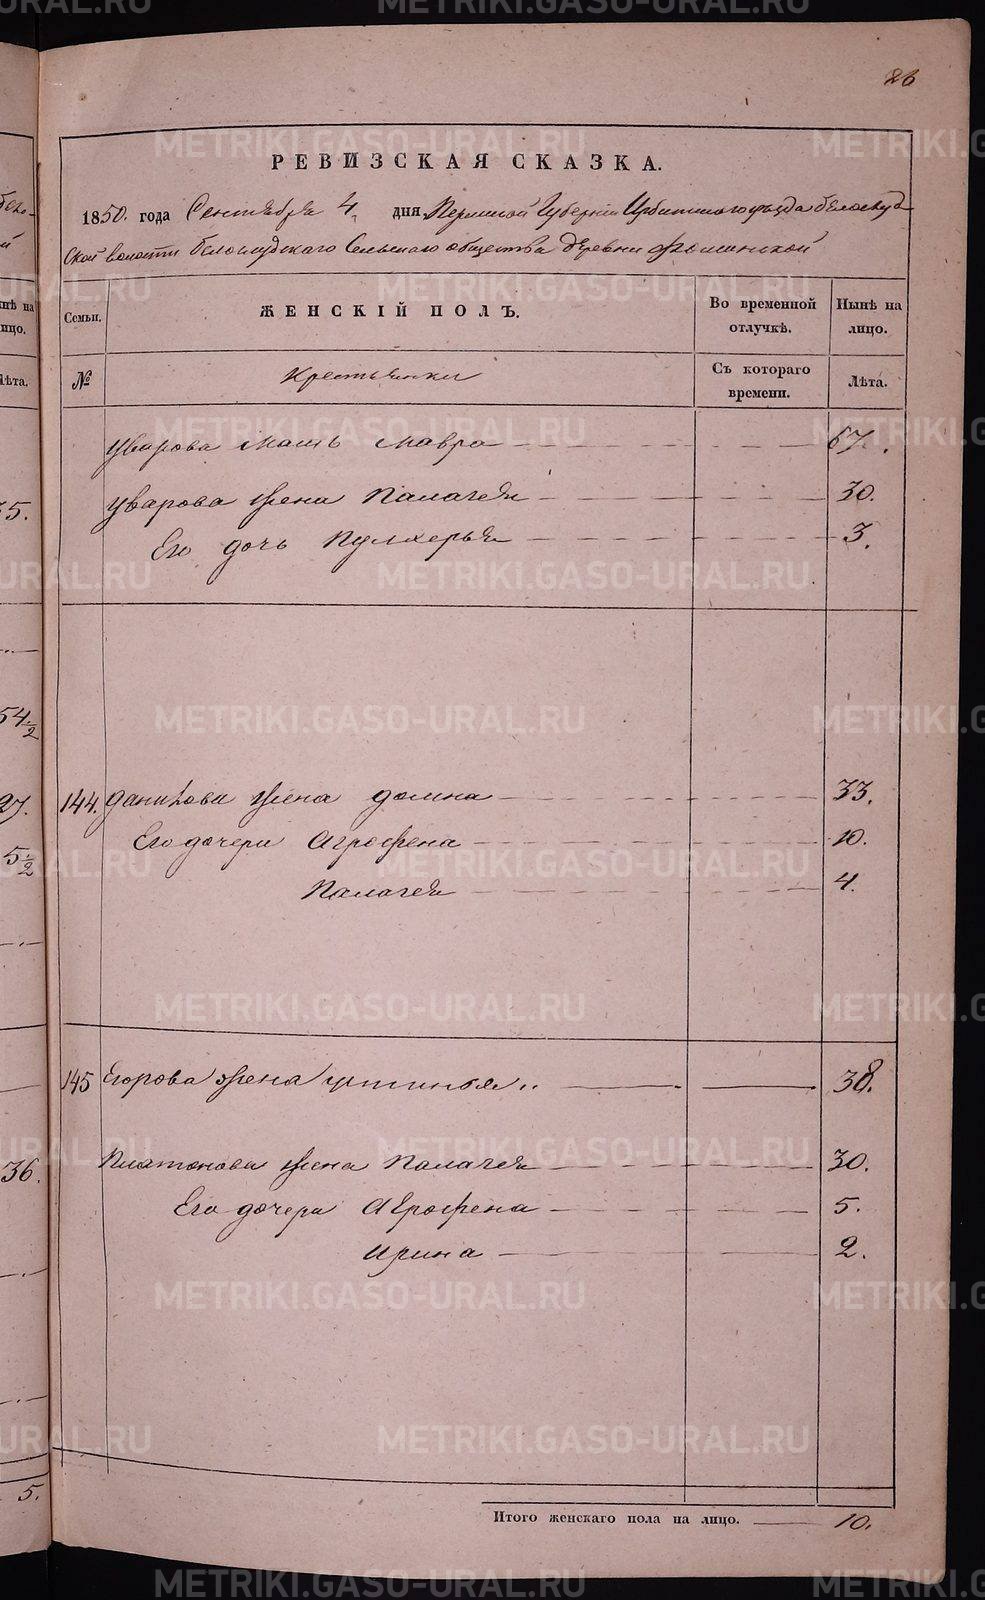 86
РЕВИЗСКАЯ СКАЗКА.
1850. года Сентября 4. дня Пермской Губернии Ирбитскаго уѣзда Белослуд-
ской волости Белослудскаго Сельскаго общества деревни
Семьи.
ЖЕНСКІЙ ПОЛЪ.
Во временной отлучкѣ.
Нынѣ на лицо.
№
Крестьянки
Съ котораго времени.
Лѣта.
Уварова мать Мавра 67.
Уварова жена Палагея 30.
Его дочь Пулхерья 3.
144. Данилова жена Домна 33.
Его дочери Агрофена 10.
Палагея 4.
145 Егорова жена Устинья 38.
Платонова жена Палагея 30.
Его дочери Агрофена 5.
Ирина 2.
Итого женскаго пола на лицо. 10.
35.
54 1/2
27.
5 1/2
36.
5.
METRIKI.GASO-URAL.RU